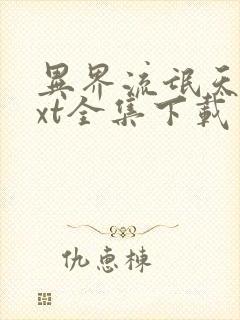 異界流氓天
xt全集下載
仇惠棟